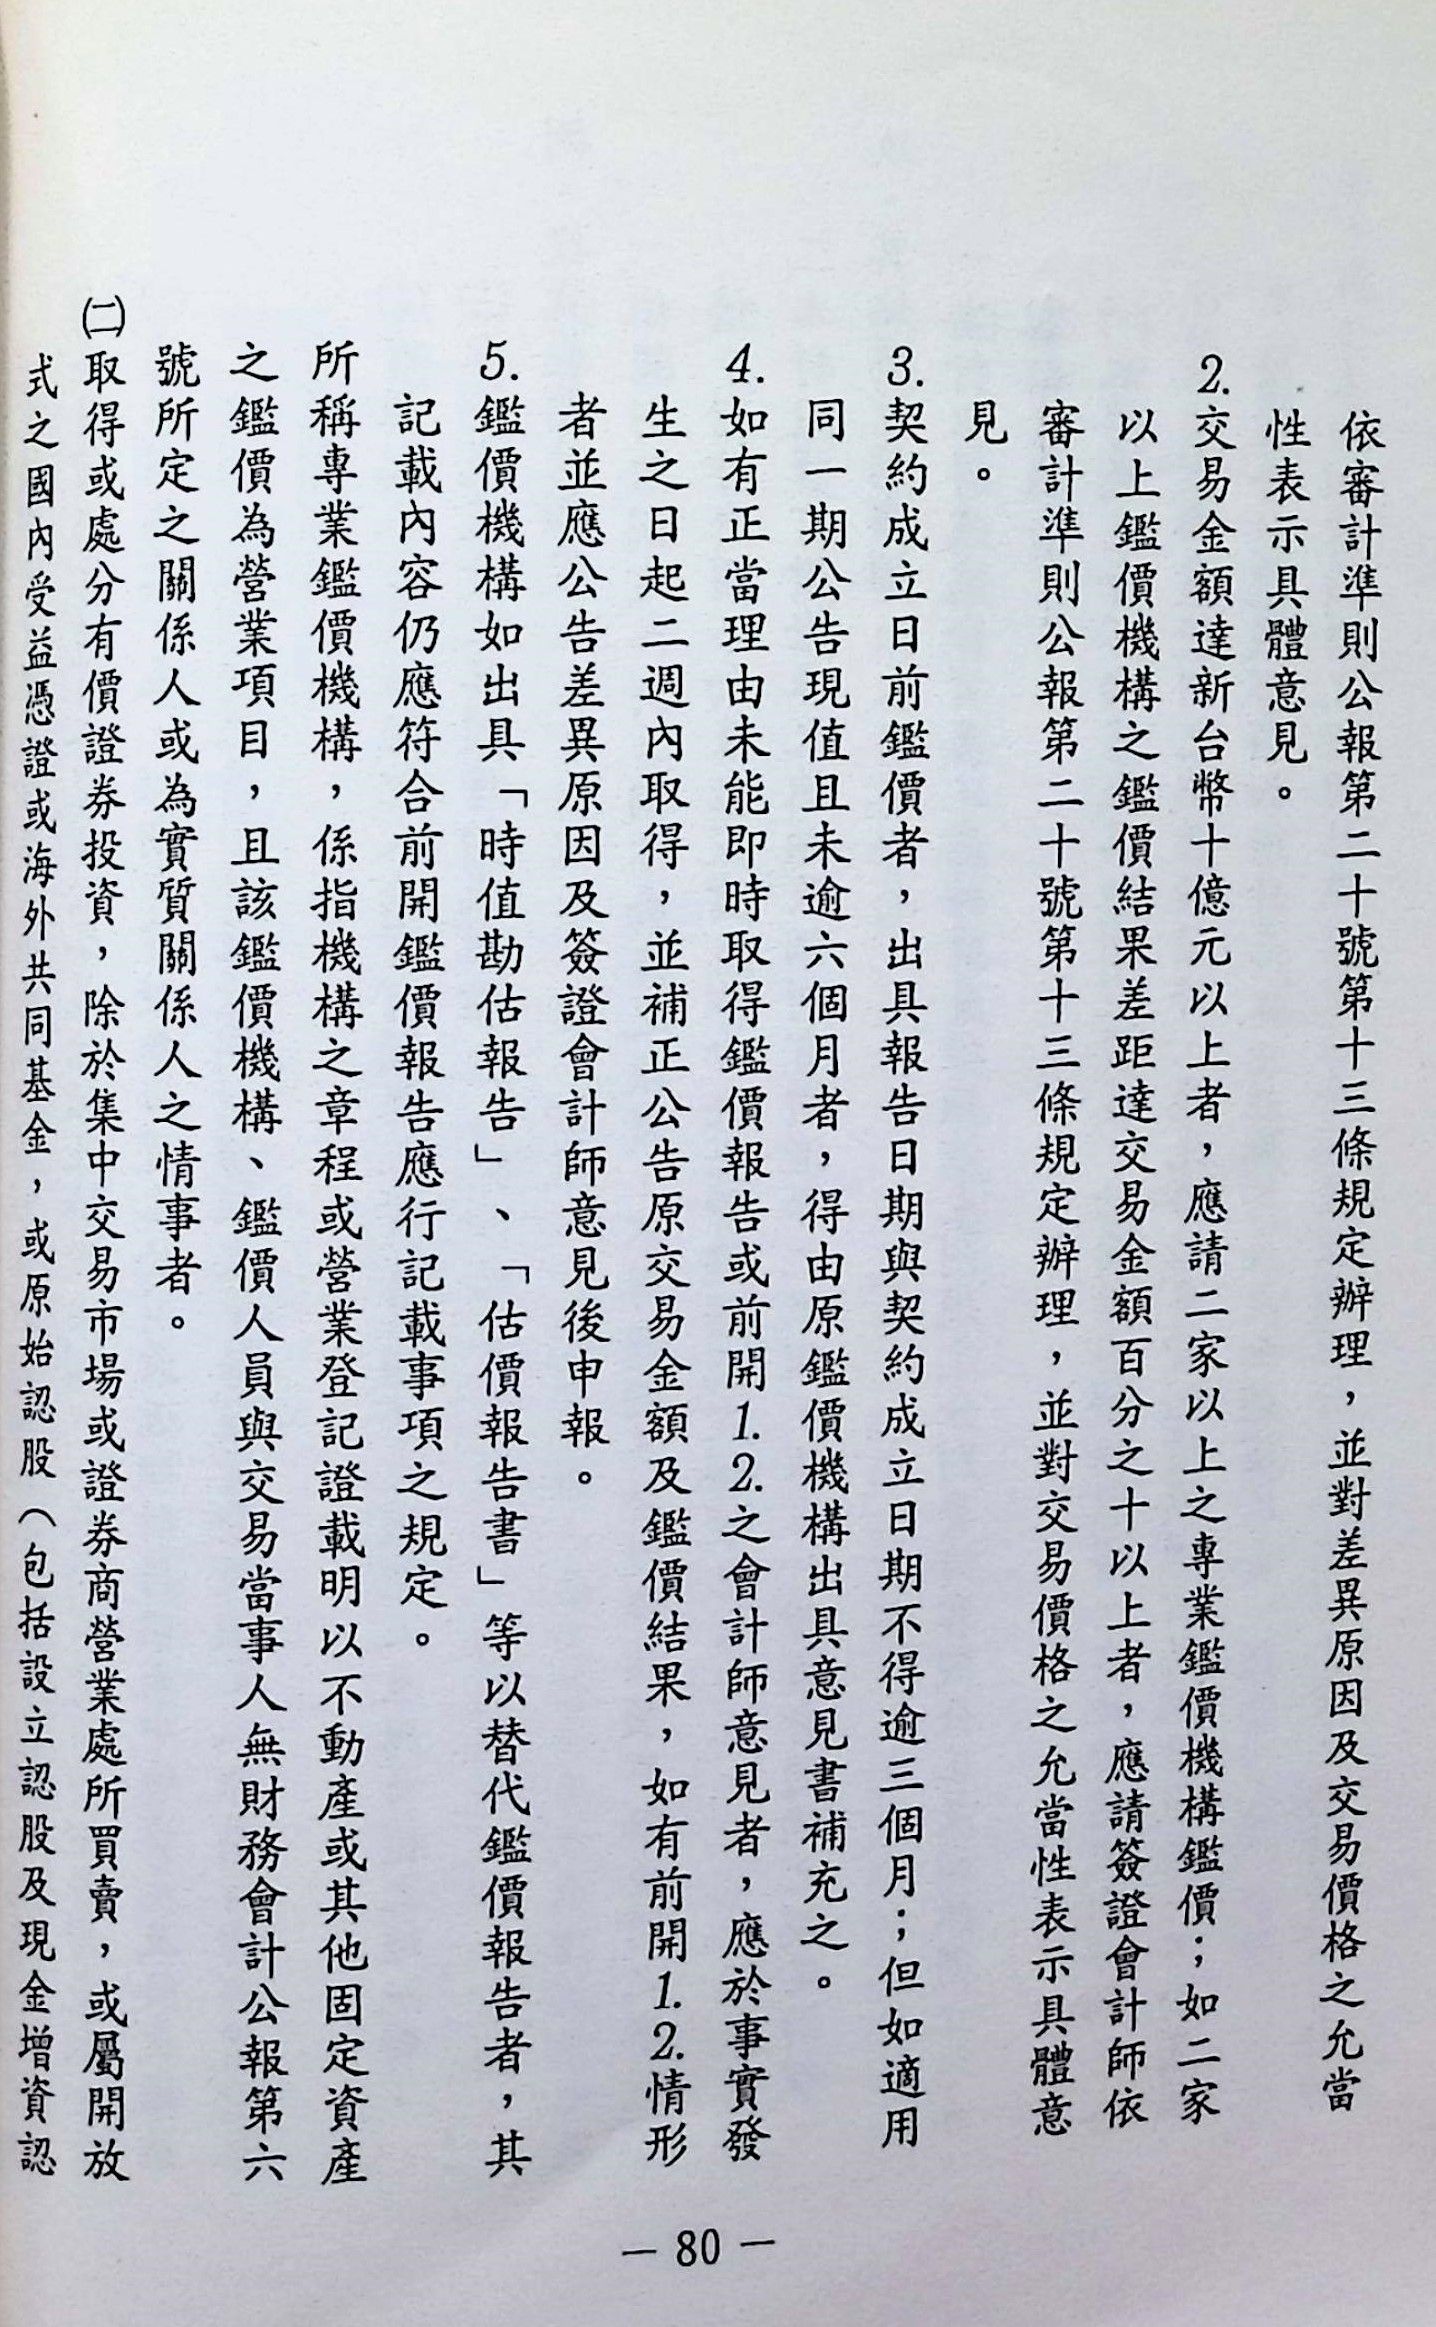 依審計準則公報第二十號第十三條規定辦理，並對差異原因及交易價格之允當
性表示具體意見。
2.交易金額達新台幣十億元以上者，應請二家以上之專業鑑價機構鑑價；如二家
以上鑑價機構之鑑價結果差距達交易金額百分之十以上者，應請簽證會計師依
審計準則公報第二十號第十三條規定辦理，並對交易價格之允當性表示具體意
見。
3.契約成立日前鑑價者，出具報告日期與契約成立日期不得逾三個月；但如適用
同一期公告現值且未逾六個月者，得由原鑑價機構出具意見書補充之。
4.如有正當理由未能即時取得鑑價報告或前開1.2.之會計師意見者，應於事實發
生之日起二週內取得，並補正公告原交易金額及鑑價結果，如有前開1.2.情形
者並應公告差異原因及簽證會計師意見後申報。
5.鑑價機構如出具「時值勘估報告」、「估價報告書」等以替代鑑價報告者，其
記載內容仍應符合前開鑑價報告應行記載事項之規定。
所稱專業鑑價機構，係指機構之章程或營業登記證載明以不動產或其他固定資產
之鑑價為營業項目，且該鑑價機構、鑑價人員與交易當事人無財務會計公報第六
號所定之關係人或為實質關係人之情事者。
㈡取得或處分有價證券投資，除於集中交易市場或證券商營業處所買賣，或屬開放
式之國內受益憑證或海外共同基金，或原始認股（包括設立認股及現金增資認
— 80 —